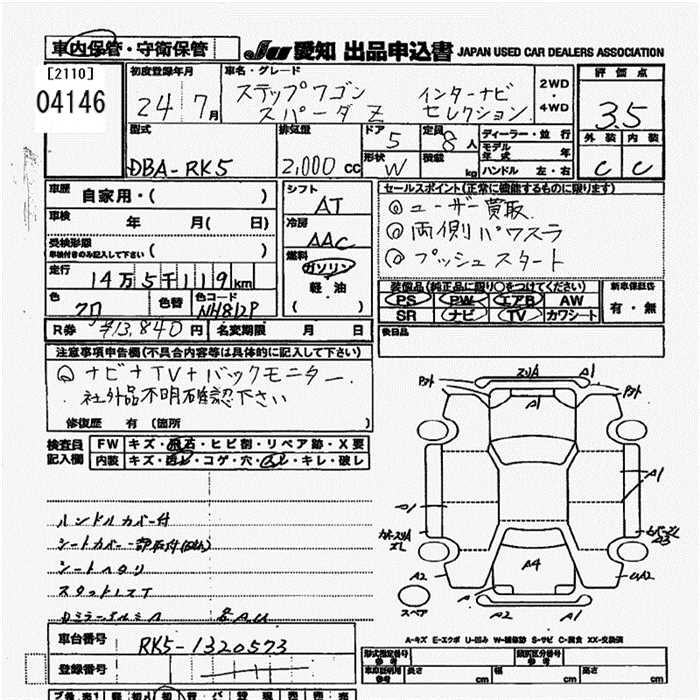 車内保管・守衛保管 JU 愛知 出品申込書 JAPAN USED CAR DEALERS ASSOCIATION
[2110]
04146
初度登録年月
24 7月
車名・グレード
ステップワゴン インターナビ
スパーダ Z セレクション
2WD
・
4WD
評価点
3.5
外装 内装
C C
型式
DBA-RK5
排気量
2,000 cc
ドア 5
形状 W
定員 8人
積載 kg
ディーラー・並行
モデル年式 年
ハンドル 左・右
車歴 自家用・( )
車検 年 月( 日)
受検形態
車検付きのみ記入して下さい ( )
走行 14万5千119km
色 クロ 色替 色コード NH812P
R券 ¥13,840円 名変期限 月 日
シフト AT
冷房 AAC
燃料
ガソリン
・
軽・油
( )
セールスポイント(正常に機能するものに限ります)
◎ユーザー買取
◎両側パワスラ
◎プッシュスタート
装備品(純正品に限り○をつけてください)
PS PW エアB AW
SR ナビ TV カワシート
新車保証書
有・無
後日品
注意事項申告欄(不具合内容等は具体的に記入して下さい)
◎ナビ+TV+バックモニター
社外品不明確認下さい
修復歴 有 (箇所 )
検査員
記入欄
FW キズ・飛石・ヒビ割・リペア跡・X要
内装 キズ・汚レ・コゲ・穴・スレ・キレ・破レ
ハンドルカバー付
シートヘタリ
A1
A1
A1
A1
A1
A4
A2
UA2
A2
A1
スペア
A-キズ E-エクボ U-凹み W-補修跡 S-サビ C-腐食 XX-交換済
車台番号 RK5-1320573
登録番号
型式指定番号
参考
類別区分番号
参考
車両証明用
参考
長さ cm 幅 cm 高さ cm